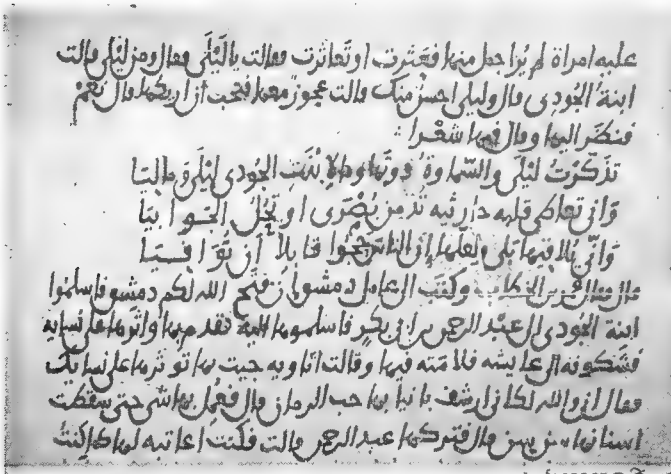 عليه امراة لم يُر اجمل منها فعَثرت او تَعاثرت فقالت يا لَيْلَى فقال ومن ليْلى قالت
ابنةُ الجُودى قال وليلى احسنُ منكِ قالت عجوز معها فتحب أن اريكها قال نَعَمْ
فنظَر اليها وقال فيها شعْرا :
تذَكّرْتُ ليْلى والسّماوةُ دونَها وما لابْنَةِ الجودى ليْلَى وماليَا
وَانى تعاطى قلبه حارثيه تُدَمِّنُ بُصْرَى او تحُلّ الجَوابيَا
وَانّى تلاقيها بَلَى ولعَلّها إن الناس حَجُّوا قابلا أن تُوَافيَا
قال فقال عمر بن الخطاب وكَتَبَ الى عامل دمشق إن فتح الله لكم دمشق فاسلموا
ابنة الجُودى الى عبْد الرحمن بن ابى بكر فاسلموها اليه فقدم بها واثرها على نسايه
فشَكونه الى عايشه فلامَته فيها وقالت له جيت بها توثرها على نسايك
فقال إنى والله لكانى ارشف بانيابها حب الرمان قال فعُمِل بها شى حتى سقَطت
اسنانها قال فتركها عبد الرحمن قالت فكنت اعاتبه لها كما كنتُ